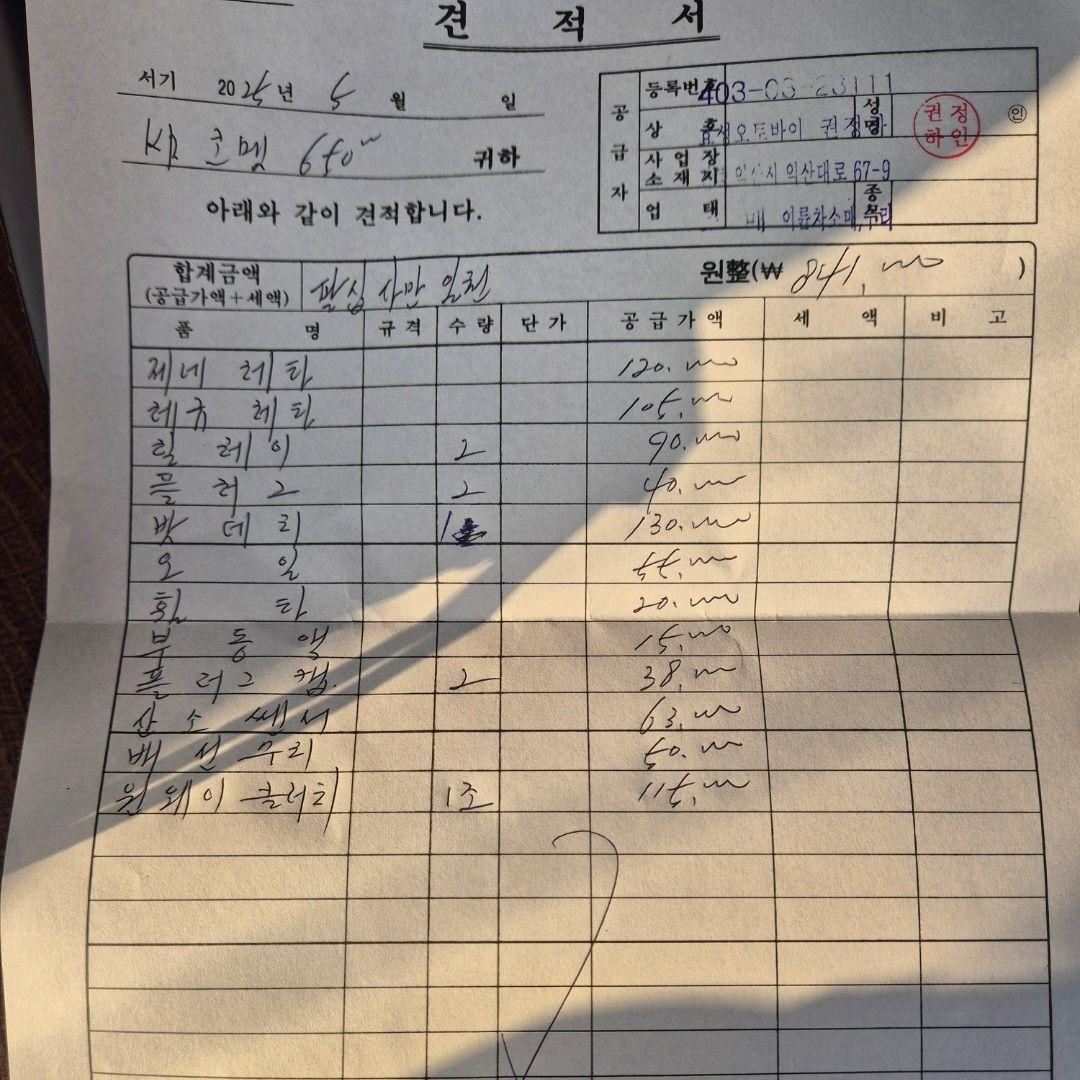 견 적 서
서기 2025년 5월 일
KR 코멧 650 귀하
아래와 같이 견적합니다.
공급자
등록번호 403-03-23111
상호 효성오토바이 권정하 성명
권정하인
인
사업장소재지 익산시 익산대로 67-9
업태 매 이륜차소매,수리 종목
합계금액 (공급가액+세액) 팔십사만일천 원整(₩ 841,000 )
품명 규격 수량 단가 공급가액 세액 비고
제네레타 120.000
레규레타 105.000
힐레이 2 90.000
플러그 2 40.000
밧데리 1 130.000
오일 55.000
휠타 20.000
부동액 15.000
플러그캡. 2 38.000
산소쎈서 63.000
배선수리 50.000
원웨이클러치 1조 115.000